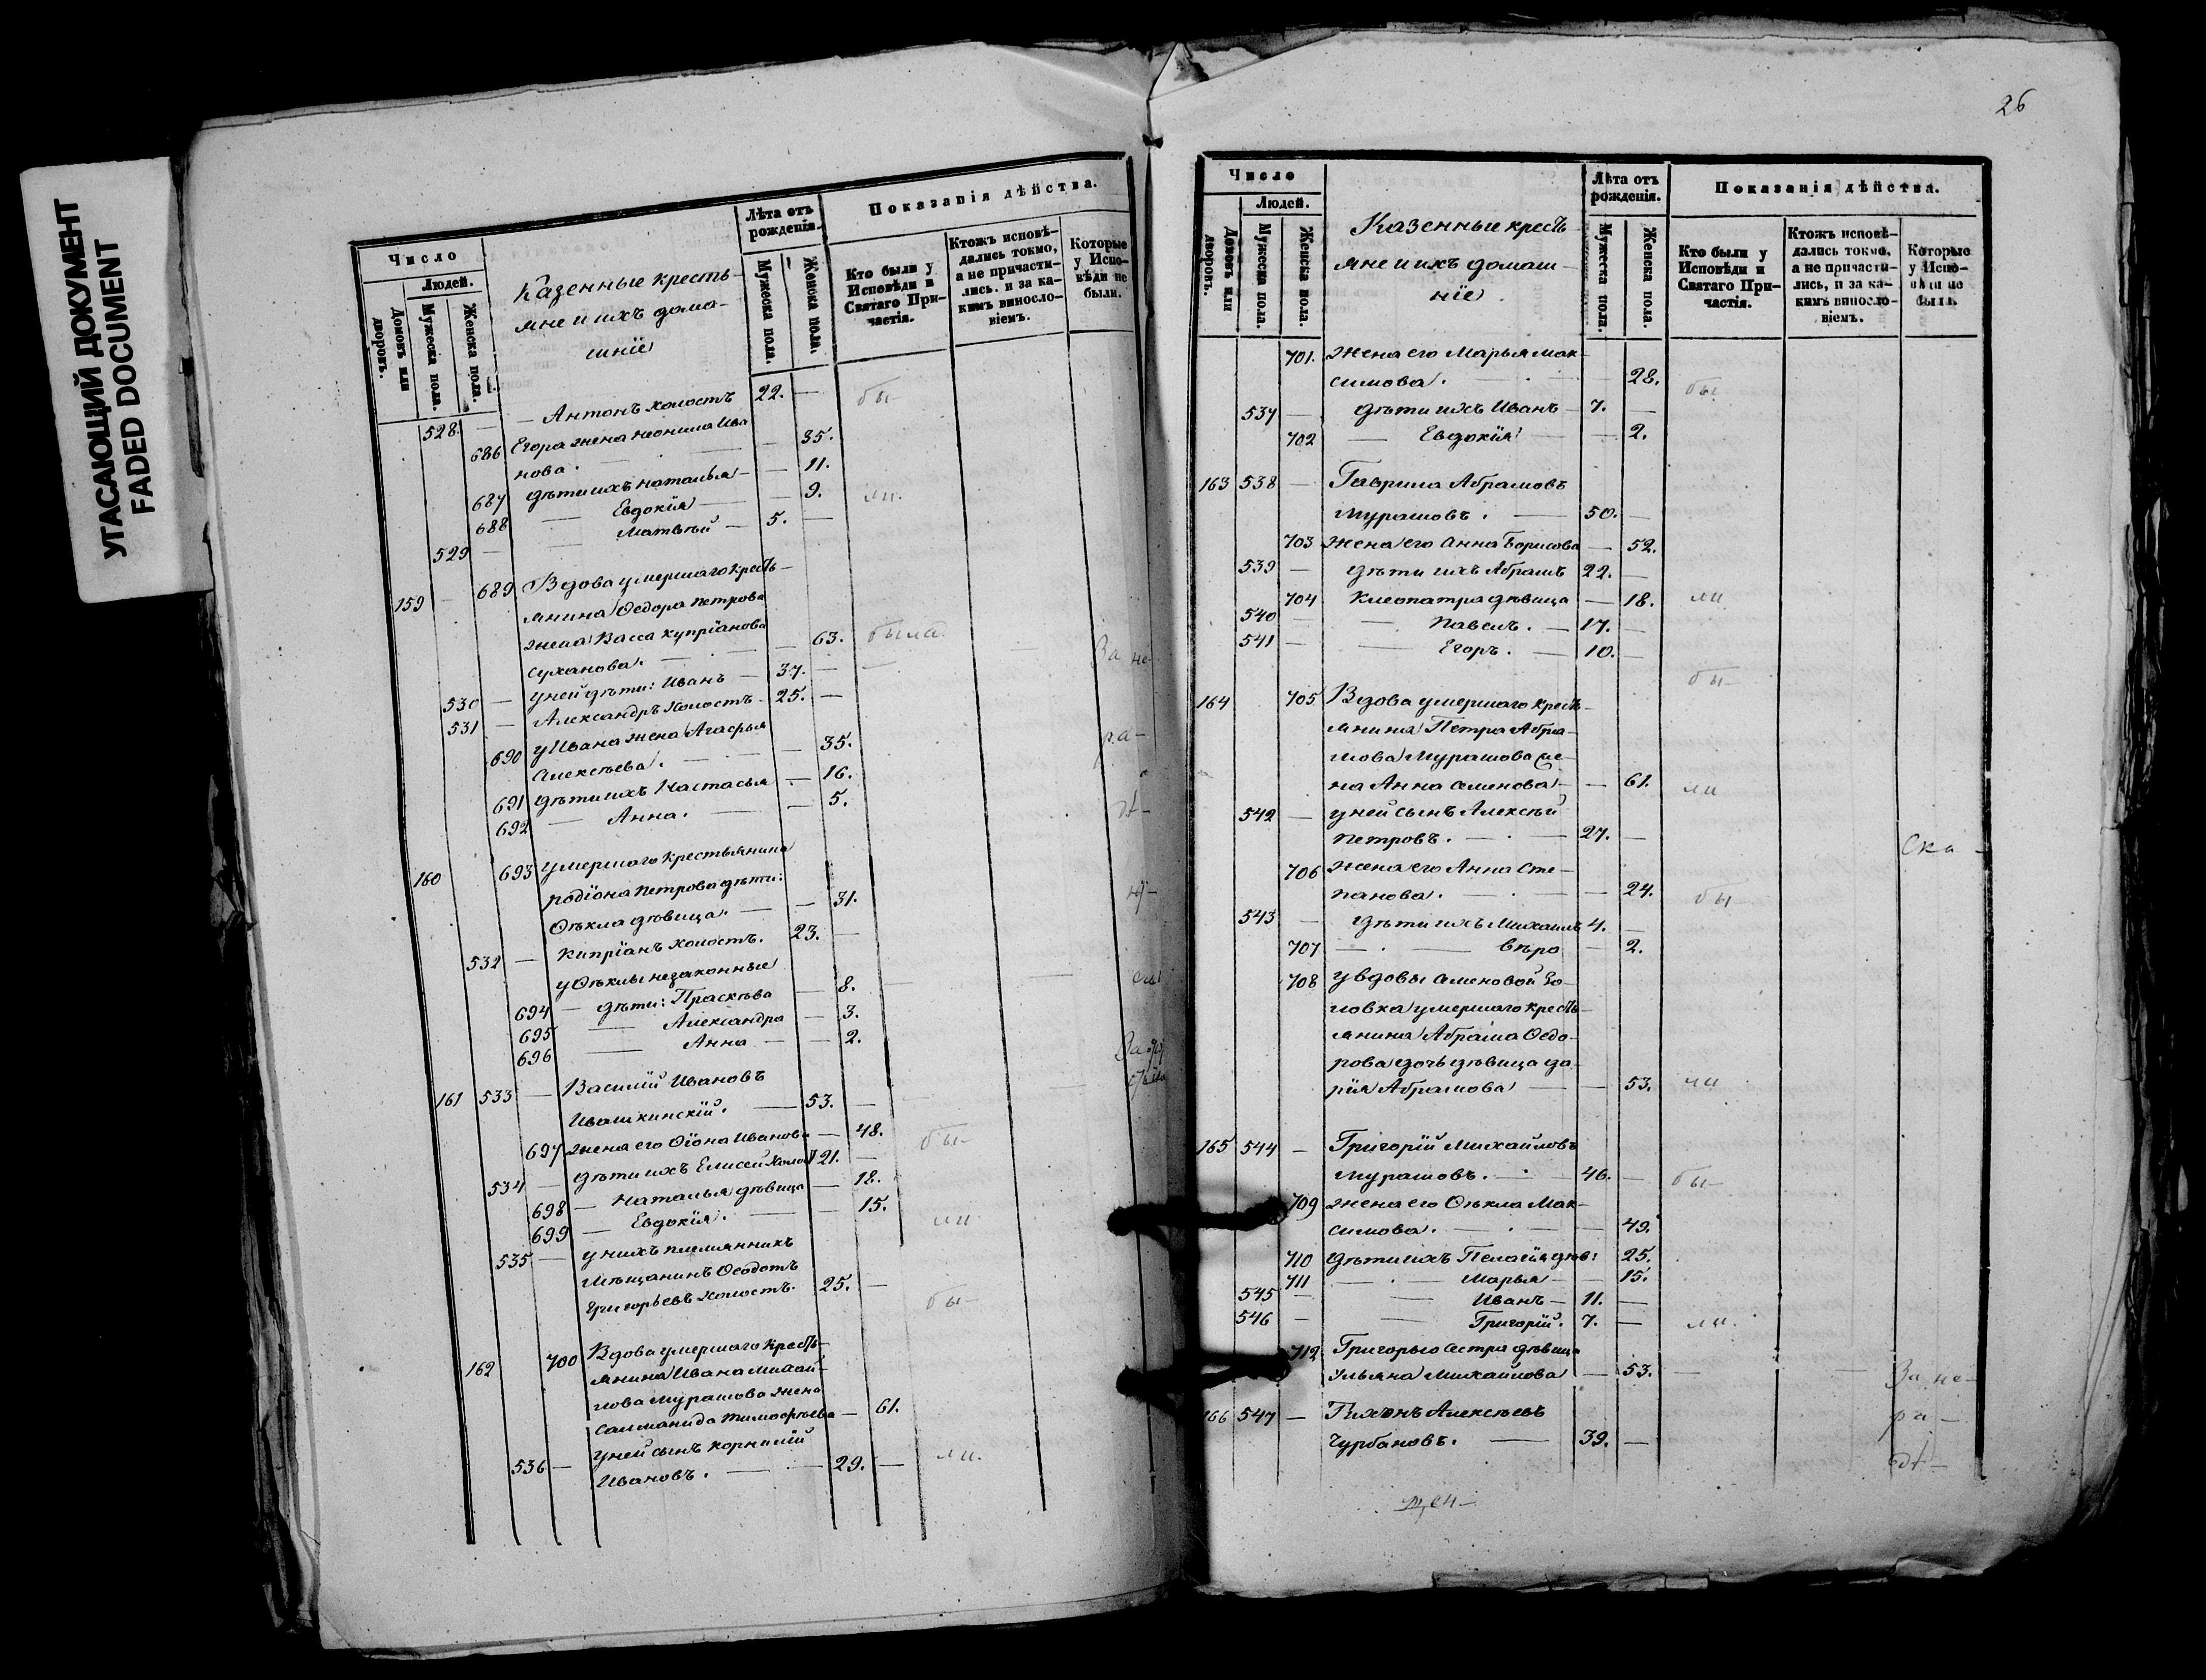 УГАСАЮЩИЙ ДОКУМЕНТ
FADED DOCUMENT
Число
Людей.
Домовъ или дворовъ.
Мужеска пола.
Женска пола.
Казенные кресть-
яне и ихъ дома-
шніе
Лѣта отъ рожденія.
Мужеска пола.
Женска пола.
Показанія дѣйства.
Кто были у Исповѣди и Святаго Причастія.
Ктожъ исповѣдались токмо, а не причастились. и за какимъ винословіемъ.
Которые у Исповѣди не были.
528. — — Антонъ холостъ 22. — бы-
686 Егора жена Неонила Ива
нова. — — 35.
687 дѣти ихъ Наталья — — 11.
688 — Евдокія — — 9. ли.
529 — Матвѣй — 5. —
159 — 689 Вдова умершаго кресть-
янина Ѳедора Петрова
жена Васса Купріанова
Суханова. — — 63. была.
530 — у ней дѣти: Иванъ — 37. — За не-
531 — Александръ холостъ — 25. —
690 у Ивана жена Агафья
Алексѣева. — — 35. ра-
691 дѣти ихъ Настасья — 16.
692 — Анна. — — 5.
160 693 умершаго крестьянина
Родіона Петрова дѣти:
Ѳекла дѣвица. — — 31.
532 — Кипріанъ холостъ. 23. —
у Ѳеклы незаконные
694 — дѣти: Праскева — 8.
695 — Александра — 3.
696 — Анна — — 2.
161 533 — Василій Ивановъ
Ивашкинскій. — 53. —
697 жена его Ѳіона Иванова — 48. бы-
534 — дѣти ихъ Елисей холост 21. —
698 — Наталья дѣвица — 18.
699 — Евдокія. — — 15. ли
535 — у нихъ племянникъ
мѣщанинъ Ѳеодотъ
Григорьевъ холостъ. 25. — бы-
162 700 Вдова умершаго кресть-
янина Ивана Михай-
лова Мурашова жена
Саломанида Тимофѣева — 61.
536 — у ней сынъ Корнилій
Ивановъ. — 29. — ли.
26
Число
Людей.
Домовъ или дворовъ.
Мужеска пола.
Женска пола.
Казенные кресть-
яне и ихъ домаш-
ніе.
Лѣта отъ рожденія.
Мужеска пола.
Женска пола.
Показанія дѣйства.
Кто были у Исповѣди и Святаго Причастія.
Ктожъ исповѣдались токмо, а не причастились, и за какимъ винословіемъ.
Которые у Исповѣди не были.
701. жена его Марья Мак-
симова. — — 28. бы
537 — дѣти ихъ Иванъ — 7. —
702 — Евдокія — — 2.
163 538 — Гаврила Абрамовъ
Мурашовъ. — 50. —
703 жена его Анна Борисова — 52.
539 — дѣти ихъ Абрамъ 22. —
704 Клеопатра дѣвица — 18. ли
540 — — Павелъ. — 17. —
541 — — Егоръ. — 10. —
бы-
164 705 Вдова умершаго кресть-
янина Петра Абра-
мова Мурашова же-
на Анна Семенова — — 61. ли
542 — у ней сынъ Алексѣй
Петровъ. — 27. — Ска-
706 жена его Анна Сте-
панова. — — 24. бы-
543 — дѣти ихъ Михаилъ 4. —
707 — — Вѣра — 2.
708 у вдовы Семеновой зо-
ловка умершаго кресть-
янина Абрама Ѳедо-
рова дочь дѣвица Да-
рія Абрамова — — 53. ли
165 544 — Григорій Михайловъ
Мурашовъ. — 46. — бы-
709 жена его Ѳекла Мак-
симова. — — 49.
710 дѣти ихъ Пелагія дѣв: 25.
711 — — Марья — — 15.
545 — — Иванъ — 11. —
546 — — Григорій. 7. — ли.
712 Григорья сестра дѣвица
Ульяна Михайлова — 53. — — За не-
166 547 — Тихонъ Алексѣевъ ра-
Чурбановъ. — 39. —